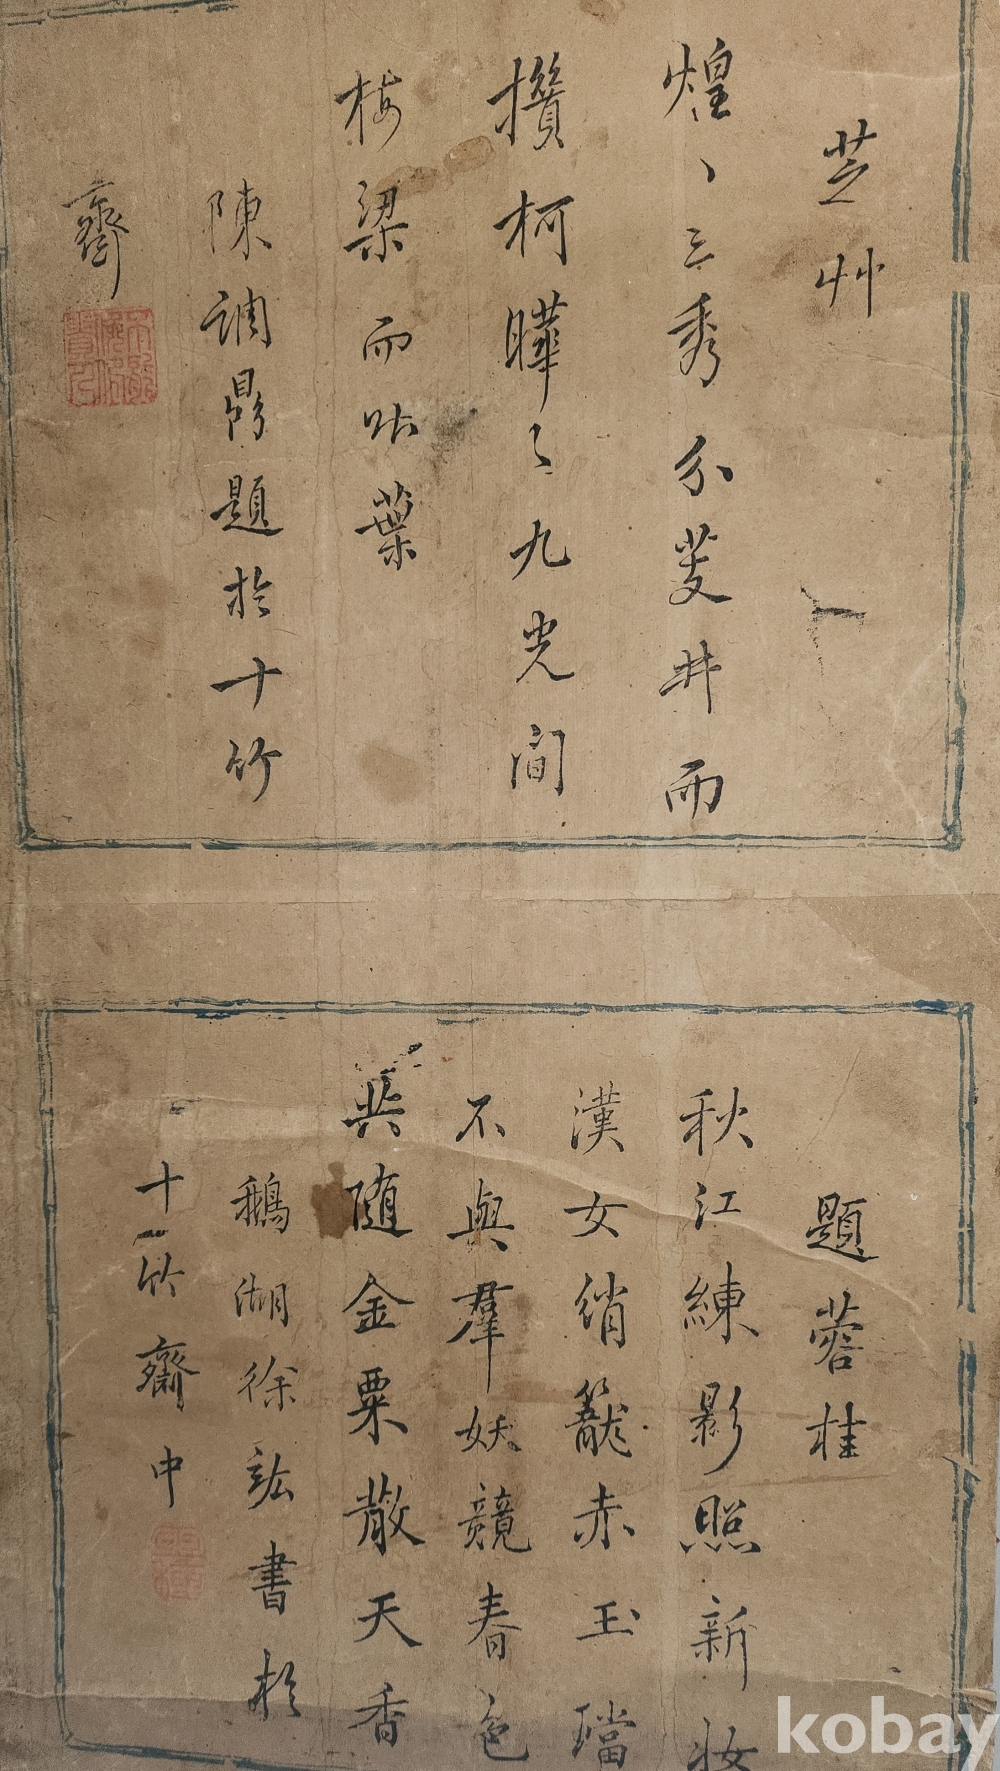 芝艸
煌〻三秀分芰井而
攢柯曄〻九光間
梅梁而呫葉
陳調鼎題於十竹
齋
題蓉桂
秋江練影照新妝
漢女綃籠赤玉璫
不與羣妖競春色
共隨金粟散天香
鵝湖徐竑書於
十竹齋中
kobay